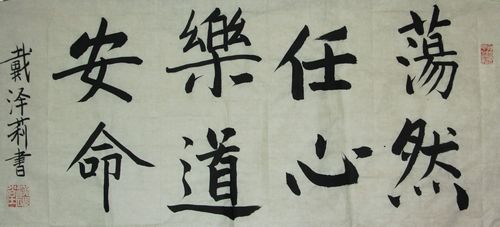 蕩然
任心
樂道
安命
戴泽莉書